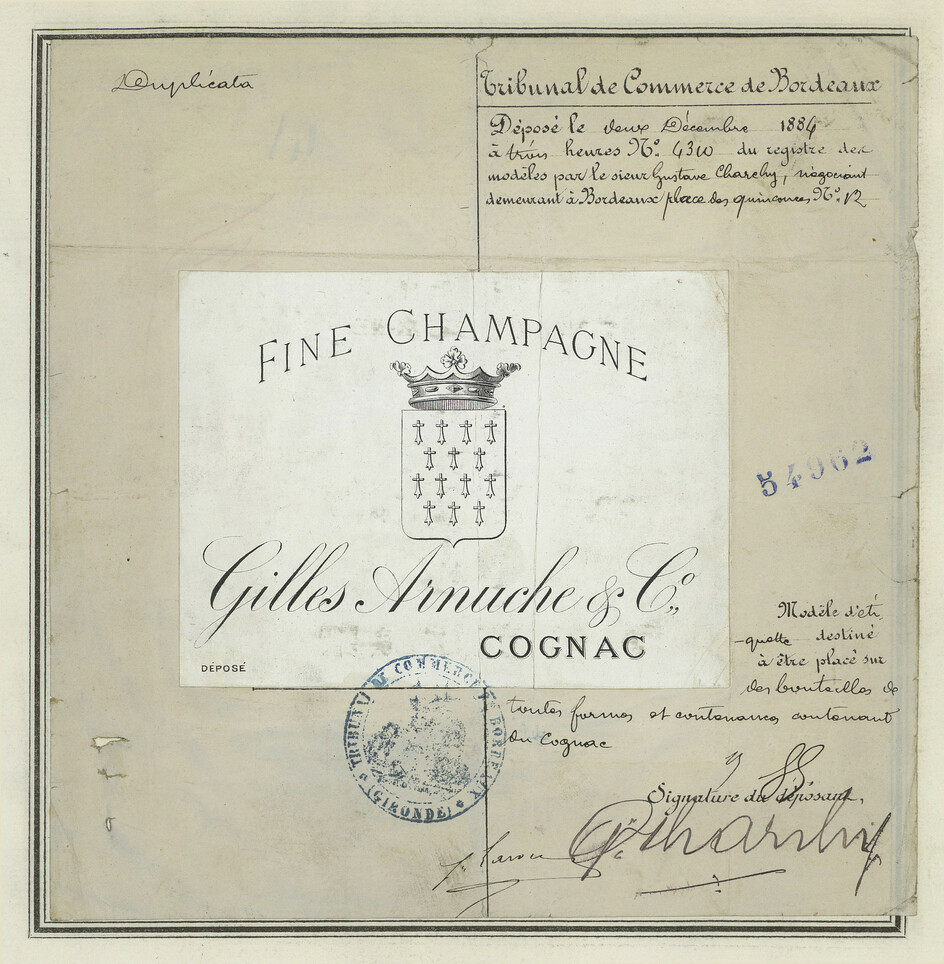 Duplicata
Tribunal de Commerce de Bordeaux
Déposé le deux Décembre 1884
à trois heures N° 4310 du registre des
modèles par le sieur Gustave Charchy, négociant
demeurant à Bordeaux place des quinconces N° 12
FINE CHAMPAGNE
54962
Gilles Arnuche & C°,,
COGNAC
DÉPOSÉ
Modèle d'éti
-quette destiné
à être placé sur
des bouteilles de
toutes formes et contenances contenant
du Cognac
TRIBUNAL DE COMMERCE DE BORDEAUX
(GIRONDE)
Signature du déposant,